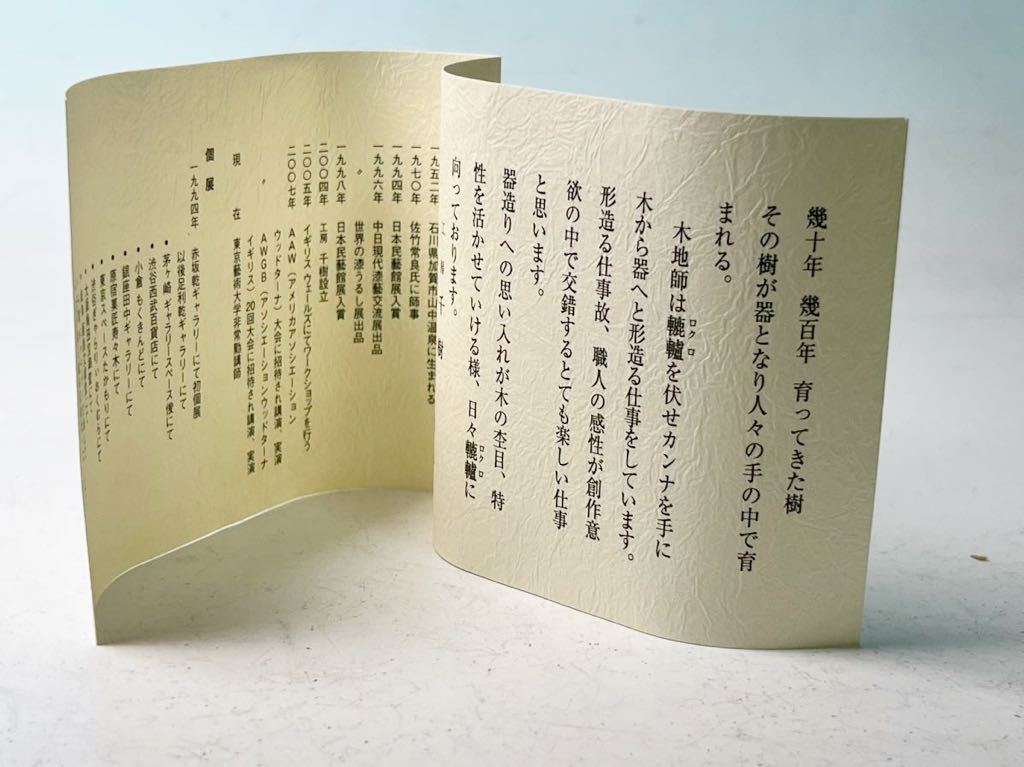 幾十年 幾百年 育ってきた樹
その樹が器となり人々の手の中で育
まれる。
木地師は轆轤を伏せカンナを手に
ロクロ
木から器へと形造る仕事をしています。
形造る仕事故、職人の感性が創作意
欲の中で交錯するとても楽しい仕事
と思います。
器造りへの思い入れが木の杢目、特
性を活かせていける様、日々轆轤に
ロクロ
向っております。
一九五二年 石川県加賀市山中温泉に生まれる
一九七〇年 佐竹常良氏に師事
一九九四年 日本民藝館展入賞
一九九六年 中日現代漆藝交流展出品
〃 世界の漆うるし展出品
一九九八年 日本民藝館展入賞
二〇〇四年 工房 千樹設立
二〇〇五年 イギリスウェールズにてワークショップを行う
二〇〇七年 AAW（アメリカアソシエーション
ウッドターナ）大会に招待され講演、実演
〃 AWGB（アソシエーションウッドターナ
イギリス）20回大会に招待され講演、実演
現在 東京藝術大学非常勤講師
個展
一九九四年 赤坂乾ギャラリーにて初個展
以後足利乾ギャラリーにて
● 茅ヶ崎ギャラリースペース俊にて
● 渋谷西武百貨店にて
● 小倉もくきんどにて
● 銀座田中ギャラリーにて
● 原宿菓匠寿々木にて
● 東京スペースたかもりにて